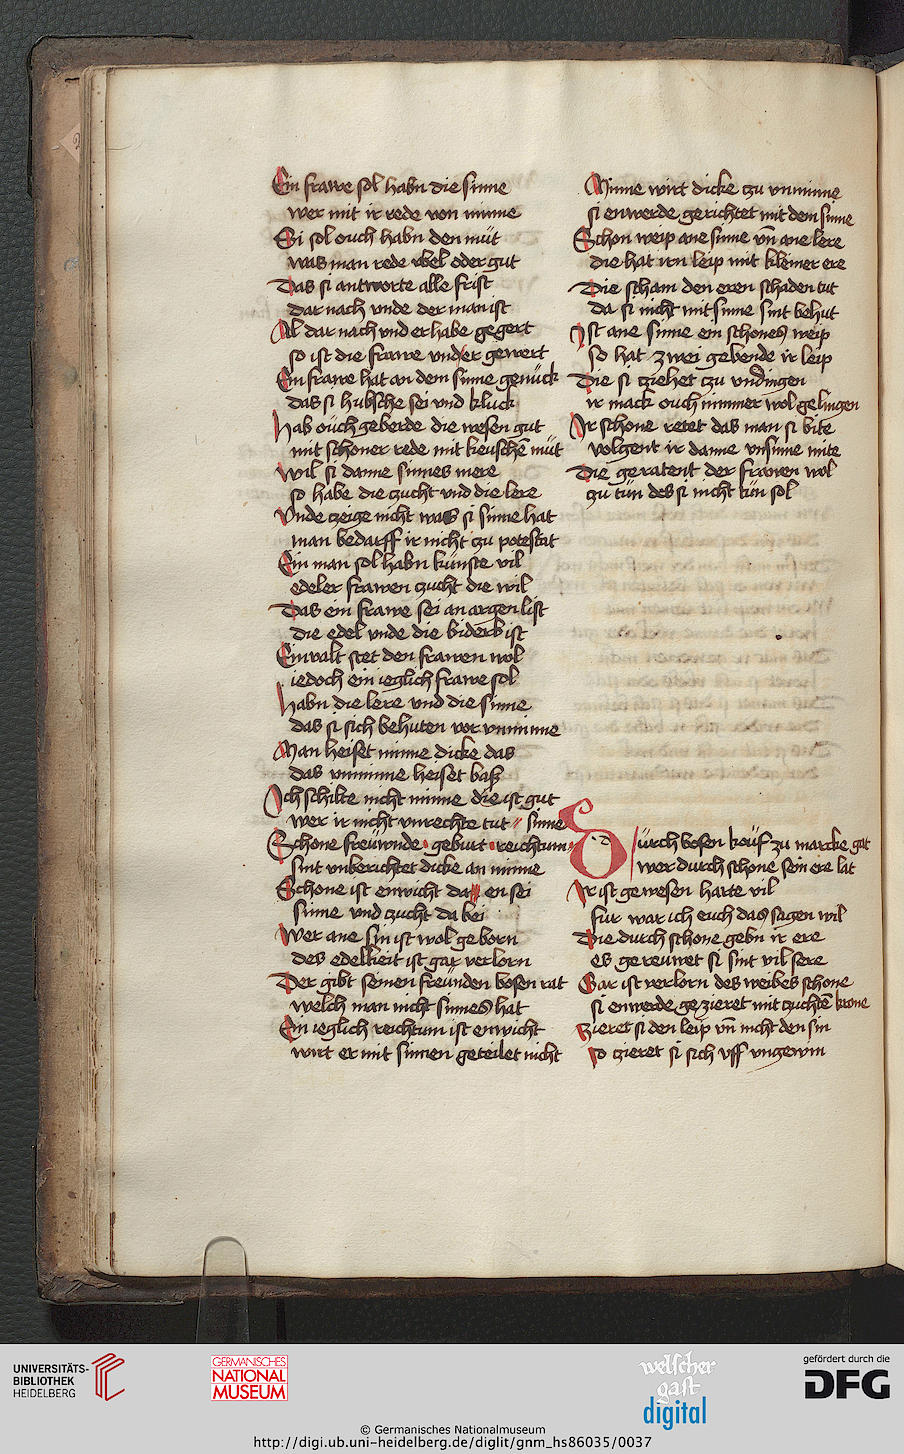 Ein frawe sol habn die sinne
wer mit ir rede von minne
Si sol ouch habn den müt
was man rede vbel oder gut
Das si antworte alle frist
dar nach vnde der man ist
Al dar nach vnd er habe gegert
so ist die frawe vnd er gewert
Ein frawe hat an dem sinne genück
das si hubsche sei vnd kluck
Hab oüch geberde die wesen gut
mit schoner rede mit keuschē müt
Wil si danne sinnes mere
so habe die zucht vnd die lere
Vnde czeige nicht was si sinne hat
man bedarff ir nicht czu potestat
Ein man sol habn künste vil
edeler frawen zucht die wil
Das ein frawe sei an argen list
die edel vnde die biderb ist
Einvalt stet den frawen wol
iedoch ein ieglich frawe sol
Habn die lere vnd die sinne
das si sich behuten vor vnminne
Man heiset minne dicke das
das vnminne heiset bas
Ich schilte nicht minne die ist gut
wer ir nicht vnrechte tut sinne
Schone freüwnde geburt reichtum
sint vnberichtet dicke an minne
Schone ist enwicht da en sei
sinne vnd zucht da bei
Wer ane sin ist wol geborn
des edelkeit ist gar verlorn
Der gibt seinen freünden bosen rat
welch man nicht sinnes hat
Ein ieglich reichtum ist enwicht
wirt er mit sinnen geteilet nicht
Minne wirt dicke czu vnminne
si enwerde gerichtet mit dem sinne
Schon weip ane sinne vn̄ ane lere
die hat irn leip mit kleiner ere
Die scham den eren schaden tut
da si nicht mit sinne sint behut
Ist ane sinne ein schones weip
so hat zwei gebende ir leip
Die si cziehet czu vndingen
ir mack ouch nimmer wol gelingen
Ir schone retet das man si bite
volgent ir danne vnsinne mite
Die geratent der frawen wol
czu tün des si nicht tün sol
Durch bosen kouf zu marcke gat
wer durch schone sein ere lat
Ir ist gewesen harte vil
für war ich euch das sagen wil
Die durch schone gebn ir ere
es gereuwet si sint vil sere
Gar ist verlorn des weibes schone
si enwerde geczieret mit zuchtē krone
Zieret si den leip vn̄ nicht den sin
so czieret si sich vff vngewin
UNIVERSITÄTS-
BIBLIOTHEK
HEIDELBERG
GERMANISCHES
NATIONAL
MUSEUM
welscher
gast
digital
gefördert durch die
DFG
© Germanisches Nationalmuseum
http://digi.ub.uni-heidelberg.de/diglit/gnm_hs86035/0037